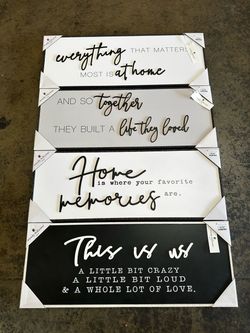 everything THAT MATTERS
MOST IS at home
AND SO together
THEY BUILT A life they loved
Home
is where your favorite
memories are.
This is us
A LITTLE BIT CRAZY
A LITTLE BIT LOUD
& A WHOLE LOT OF LOVE.